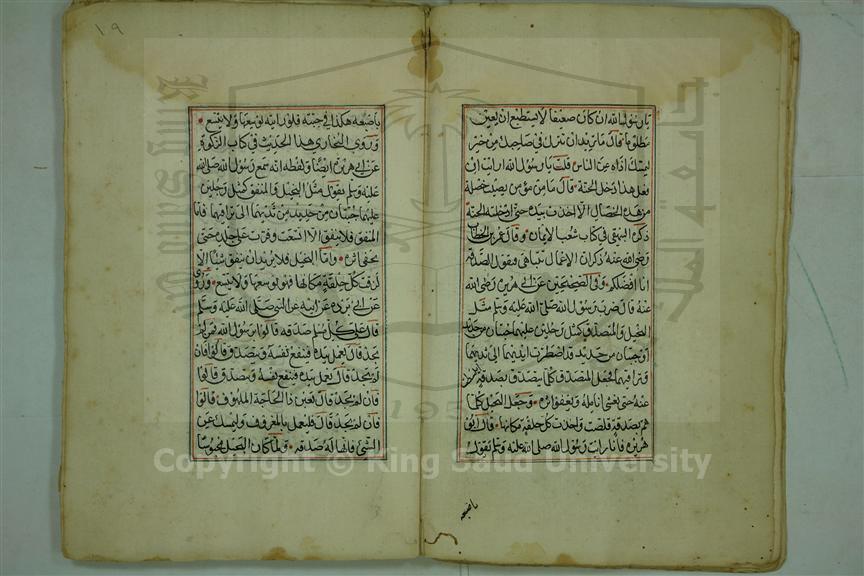 يا رسول الله ان كان ضعيفا لا يستطيع ان يعين
مظلوما قال ما تريد ان تترك في صاحبك من خير
ليمسك اذاه عن الناس قلت يا رسول الله ارايت ان
فعل هذا دخل الجنة قال ما من مؤمن يصيب خصلة
من هذه الخصال الا اخذت بيده حتى ادخلته الجنة
ذكره البيهقي في كتاب شعب الايمان وقال عمر بن الخطاب
رضي الله عنه ذكر ان الاعمال تتباهى فيقول الصدقة
انا افضلكم وفي الصحيحين عن ابي هريرة رضي الله
عنه قال ضرب رسول الله صلى الله عليه وسلم مثل
البخيل والمتصدق كمثل رجلين عليهما جبتان من حديد
او جنتان من حديد قد اضطرت ايديهما الى ثديهما
وتراقيهما فجعل المتصدق كلما يصدق بصدقة
عنه حتى يغشى انامله ويعفو اثره وجعل البخيل كلما
هم بصدقة قلصت واخذت كل حلقة مكانها قال ابو
هريرة فانا رايت رسول الله صلى الله عليه وسلم يقول
باضبعه
١٩
باضبعه هكذا في جبته فلو رايته يوسعها ولا يتسع
وروى البخاري هذا الحديث في كتاب الزكوة
عن ابي هريرة ايضا ولفظه انه سمع رسول الله صلى الله
عليه وسلم يقول مثل البخيل والمنفق كمثل رجلين
عليهما جبتان من حديد من ثديهما الى تراقيهما فاما
المنفق فلا ينفق الا اتسعت وفرت على جلده حتى
يخفى اثره واما البخيل فلا يريد ان ينفق شيئا الا
لزقت كل حلقة مكانها فهو يوسعها ولا يتسع وروى
عن ابي بردة عن ابيه عن النبي صلى الله عليه وسلم
قال على كل مسلم صدقة قالوا يا رسول الله فمن لم
يجد قال يعمل بيده فينفع نفسه ويتصدق قالوا فان
لم يجد قال يعمل بيده فينفع نفسه ويتصدق قالوا
فان لم يجد قال يعين ذا الحاجة الملهوف قالوا
فان لم يجد قال فليعمل بالمعروف وليمسك عن
الشر فانها له صدقة ولما كان البخيل محبوسا
Copyright © King Saud University
جامعة الملك سعود
195